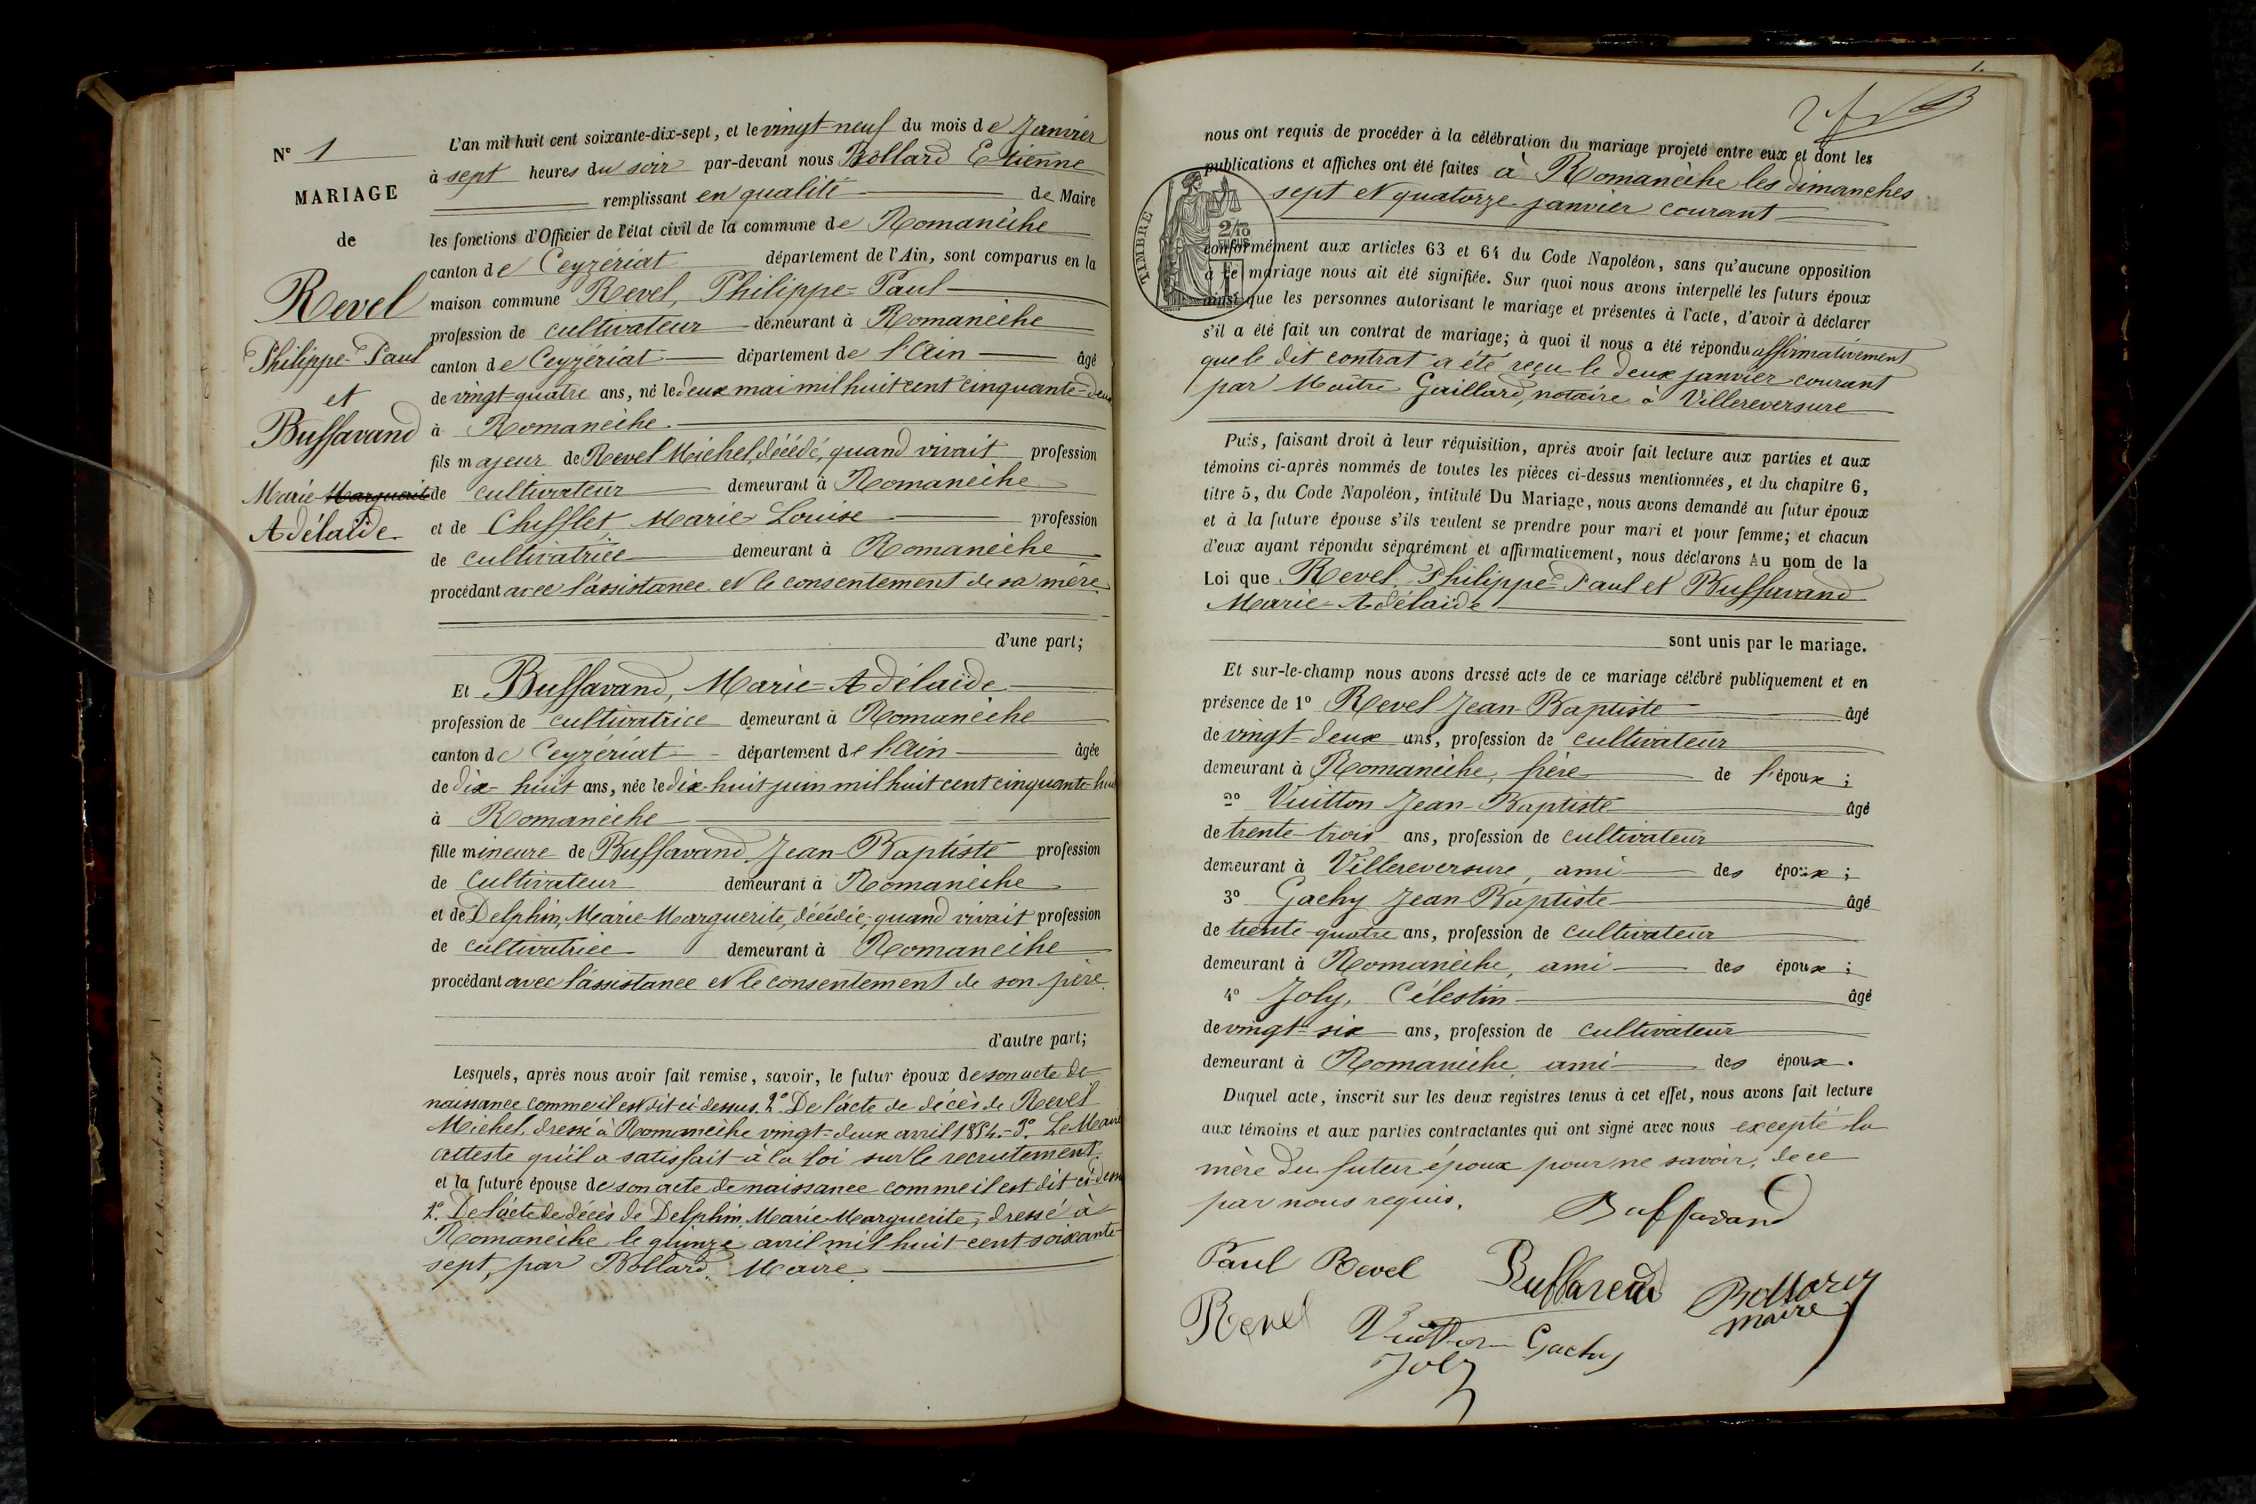 N° 1
MARIAGE
de
Revel
Philippe-Paul
et
Buffavand
Marie Marguerite
Adélaïde
L'an mil huit cent soixante-dix-sept, et le vingt-neuf du mois de Janvier
à sept heures du soir par-devant nous Bollard Etienne
remplissant en qualité de Maire
les fonctions d'Officier de l'état civil de la commune de Romanèche
canton de Ceyzériat département de l'Ain, sont comparus en la
maison commune Revel, Philippe-Paul
profession de cultivateur demeurant à Romanèche
canton de Ceyzériat département de l'Ain âgé
de vingt-quatre ans, né le deux mai mil huit cent cinquante-deux
à Romanèche
fils majeur de Revel Michel, décédé, quand vivait profession
de cultivateur demeurant à Romanèche
et de Chifflet Marie-Louise profession
de cultivatrice demeurant à Romanèche
procédant avec l'assistance et le consentement de sa mère
d'une part;
Et Buffavand, Marie-Adélaïde
profession de cultivatrice demeurant à Romanèche
canton de Ceyzériat département de l'Ain âgée
de dix-huit ans, née le dix-huit juin mil huit cent cinquante-huit
à Romanèche
fille mineure de Buffavand Jean-Baptiste profession
de cultivateur demeurant à Romanèche
et de Delphin, Marie-Marguerite, décédée, quand vivait profession
de cultivatrice demeurant à Romanèche
procédant avec l'assistance et le consentement de son père
d'autre part;
Lesquels, après nous avoir fait remise, savoir, le futur époux de son acte de
naissance comme il est dit ci-dessus. 2° De l'acte de décès de Revel
Michel, dressé à Romanèche vingt-deux avril 1854.- 3° Le Maire
atteste qu'il a satisfait à la loi sur le recrutement.
et la future épouse de son acte de naissance comme il est dit ci-dessus
2° De l'acte de décès de Delphin Marie Marguerite, dressé à
Romanèche le quinze avril mil huit cent soixante-
sept, par Bollard Maire.
1.
nous ont requis de procéder à la célébration du mariage projeté entre eux et dont les
publications et affiches ont été faites à Romanèche les dimanches
sept et quatorze janvier courant
TIMBRE
2/10
EN SUS
conformément aux articles 63 et 64 du Code Napoléon, sans qu'aucune opposition
à ce mariage nous ait été signifiée. Sur quoi nous avons interpellé les futurs époux
ainsi que les personnes autorisant le mariage et présentes à l'acte, d'avoir à déclarer
s'il a été fait un contrat de mariage; à quoi il nous a été répondu affirmativement
que le dit contrat a été reçu le deux janvier courant
par Maître Gaillard, notaire à Villereversure
Puis, faisant droit à leur réquisition, après avoir fait lecture aux parties et aux
témoins ci-après nommés de toutes les pièces ci-dessus mentionnées, et du chapitre 6,
titre 5, du Code Napoléon, intitulé Du Mariage, nous avons demandé au futur époux
et à la future épouse s'ils veulent se prendre pour mari et pour femme; et chacun
d'eux ayant répondu séparément et affirmativement, nous déclarons Au nom de la
Loi que Revel, Philippe-Paul et Buffavand
Marie-Adélaïde
sont unis par le mariage.
Et sur-le-champ nous avons dressé acte de ce mariage célébré publiquement et en
présence de 1° Revel Jean-Baptiste âgé
de vingt-deux ans, profession de cultivateur
demeurant à Romanèche, frère de l'époux;
2° Vuitton Jean-Baptiste âgé
de trente-trois ans, profession de cultivateur
demeurant à Villereversure, ami des époux;
3° Gachy Jean-Baptiste âgé
de trente-quatre ans, profession de cultivateur
demeurant à Romanèche, ami des époux;
4° Joly, Célestin âgé
de vingt-six ans, profession de cultivateur
demeurant à Romanèche ami des époux.
Duquel acte, inscrit sur les deux registres tenus à cet effet, nous avons fait lecture
aux témoins et aux parties contractantes qui ont signé avec nous excepté la
mère du futur époux pour ne savoir, de ce
par nous requis.
Buffavand
Paul Revel Buffavand Bollard
maire
Revel Vuitton Gachy
Joly